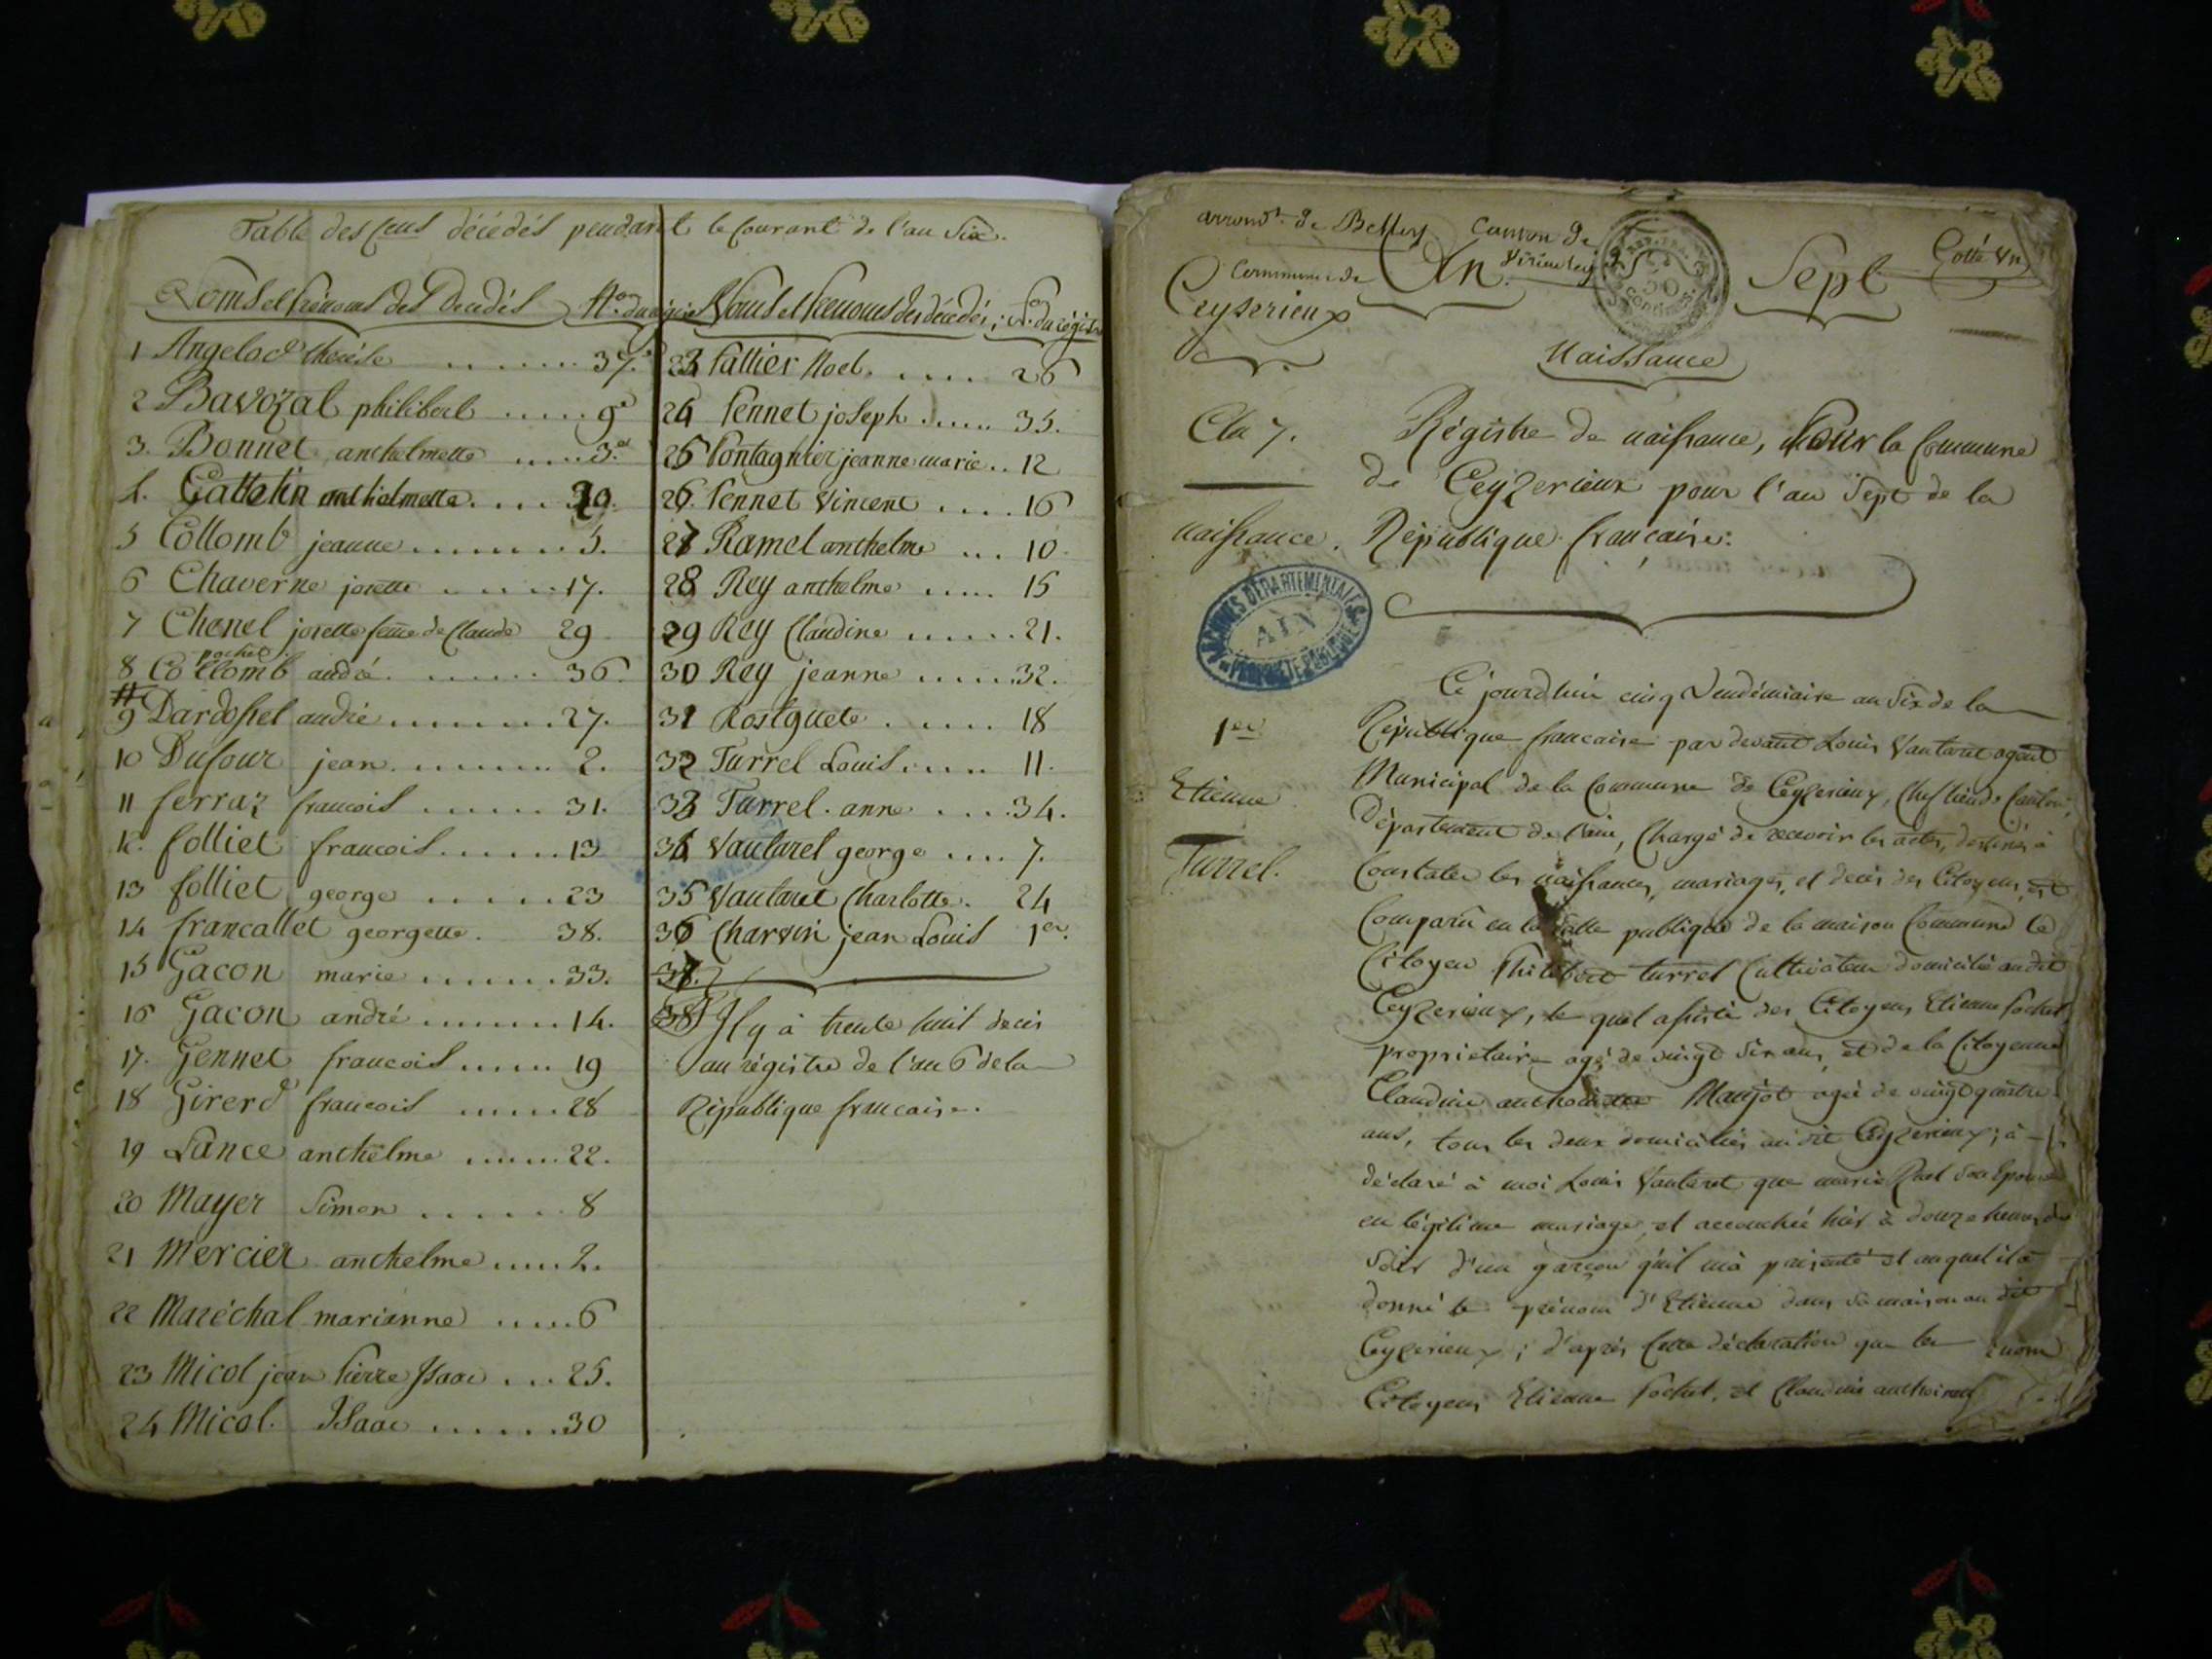 Table des Cens décédés pendant le Courant de l'an Six.
Noms et Prénoms des Décédés
1 Angelod thereśe ........ 37.
2 Bavozal philibert ..... 9e
3. Bonnet anthelmette ..... 3.e
4. Cattelin anthelmette .... 20.
5 Collomb jeanne ....... 5.
6 Chaverne josette ...... 17.
7 Chenel josette feme de Claude 29
pochet
8 Collomb andré. ....... 36.
9 Dardossel andré ........ 27.
10 Dufour jean. ........ 2.
11 ferraz francois ...... 31.
12. folliet francois ...... 13
13 folliet george ...... 23
14 francallet georgette. 38.
15 Gacon marie ...... 33.
16 Gacon andré ....... 14.
17. Gennet francois ..... 19
18 Girerd francois ..... 28
19 Lance anthelme ..... 22.
20 Mayer Simon ...... 8
21 Mercier anthelme ..... 2.
22 Maréchal marianne ..... 6
23 Micol jean Pierre Isaac ... 25.
24 Micol. Isaac ...... 30
Noms et Prenoms des décédés; No. du régistre
23 Pattier Noel. ..... 26
24 Pennet joseph ..... 35.
25 Pontagnier jeanne marie .. 12
26. Pennet Vincent .... 16
27 Ramel anthelme ... 10
28 Rey anthelme ..... 15
29 Rey Claudine ...... 21.
30 Rey jeanne ..... 32.
31 Rose guete ...... 18
32 Turrel Louis ..... 11.
33 Turrel. anne .... 34.
34 Vautaret george .... 7.
35 Vautaret Charlotte. 24
36 Charvin jean Louis 1er.
37.
38 Il y à trente huit decès
au régistre de l'an 6 de la
République francaise.
arrondt. de Belley Canton de
Commune de An. Virieu Sept Cotté Un
Ceyserieux
Naissance
An 7. Régistre de naissance, Pour la Commune
de Ceyzerieux pour l'an Sept de la
naissance. République francaise.
ARCHIVES DÉPARTEMENTALES
AIN
PROPRIÉTÉ PUBLIQUE
Ce jourdhui cinq Vendémiaire an Six de la
1er République francaise par devant Louis Vautaret agent
Etienne Municipal de la Commune de Ceyzerieux, Chef lieu de Canton,
Département de l'ain, Chargé de recevoir les actes, destinés à
Turrel. Constater les naissances, mariages, et decès des Citoyens, est
Comparû en la Salle publique de la maison Commune le
Citoyen Philibert Turrel Cultivateur domicilié audit
Ceyzerieux, le quel assisté des Citoyens Etienne Pochet,
proprietaire agé de vingt Six ans, et de la Citoyenne
Claudine anthoinette Maujot agée de vingt quatre
ans, tous les deux domiciliés au dit Ceyzerieux; à
déclaré à moi Louis Vautaret que marie Son Epouse
en légitime mariage, et accouchée hier à douze heures du
Soir d'un garcon qu'il m'à présenté et auquel il à
donné le prénom d'Etienne dans Sa maison au dit
Ceyzerieux; d'après Cette déclaration que les
Citoyens Etienne Pochet, et Claudine